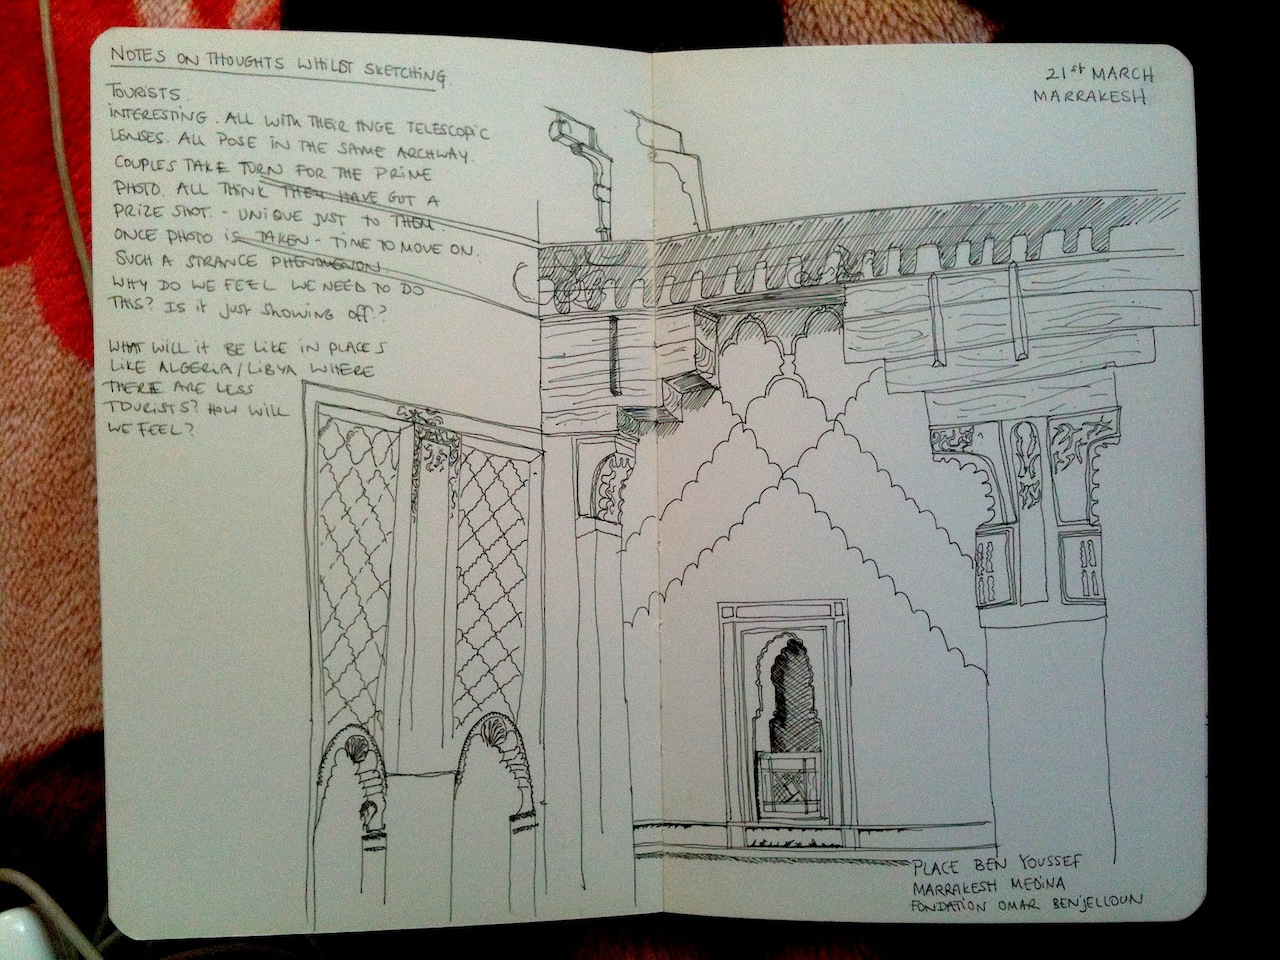 NOTES ON THOUGHTS WHILST SKETCHING.
TOURISTS.
INTERESTING. ALL WITH THEIR HUGE TELESCOPIC
LENSES. ALL POSE IN THE SAME ARCHWAY.
COUPLES TAKE TURN FOR THE PRIME
PHOTO. ALL THINK THEY HAVE GOT A
PRIZE SHOT. - UNIQUE JUST TO THEM.
ONCE PHOTO IS TAKEN - TIME TO MOVE ON.
SUCH A STRANGE PHENOMENON.
WHY DO WE FEEL WE NEED TO DO
THIS? IS IT JUST SHOWING OFF?
WHAT WILL IT BE LIKE IN PLACES
LIKE ALGERIA/LIBYA WHERE
THERE ARE LESS
TOURISTS? HOW WILL
WE FEEL?
21st MARCH
MARRAKESH
PLACE BEN YOUSSEF
MARRAKESH MEDINA
FONDATION OMAR BENJELLOUN